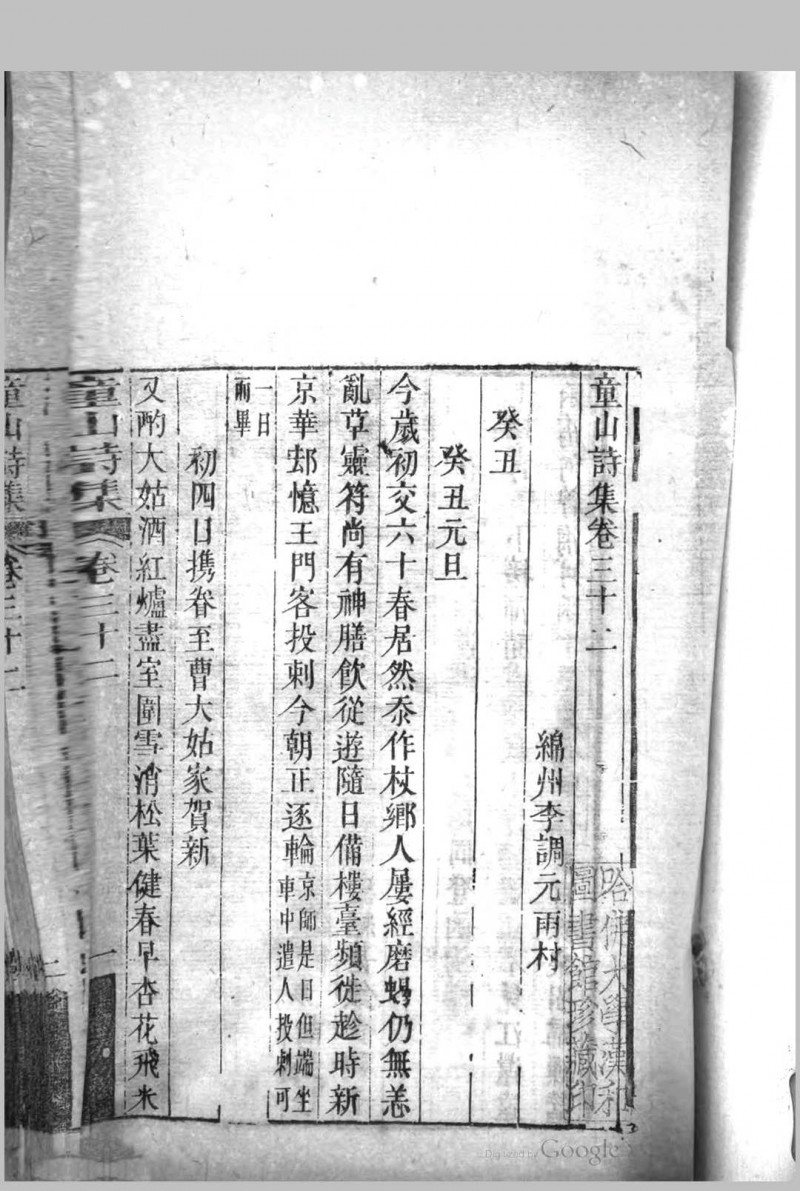 童山詩集卷三十二
綿州李調元雨村
癸丑
癸丑元旦
今歲初交六十春居然忝作杖鄉人屢經磨蝎仍無恙
亂草靈符尚有神膳飲從遊隨日備樓臺頻徙趁時新
京華却憶王門客投刺今朝正逐輪京師是日但端坐車中遣人投刺可
一日而畢
初四日携眷至曹大姑家賀新
又酌大姑酒紅爐盡室圍雪消松葉健春早杏花飛米
童山詩集 卷三十二 一
童山詩集 卷三十二 二
哈佛大學漢和圖書館珍藏印
Digitized by Google